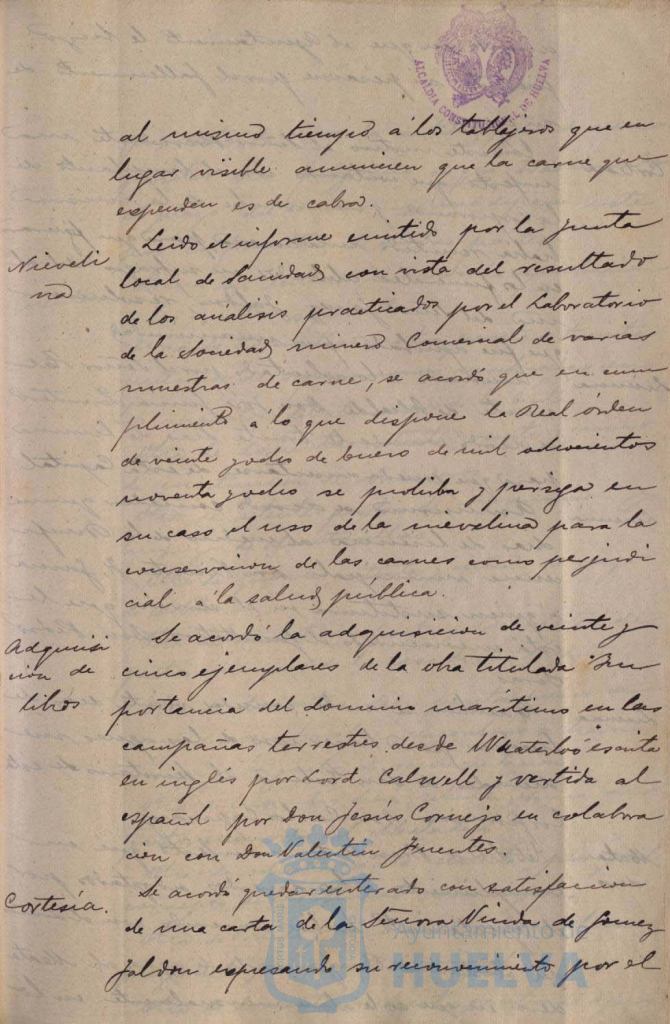 ALCALDIA CONSTITUCIONAL DE HUELVA
al mismo tiempo á los tablajeros que en
lugar visible anuncien que la carne que
expenden es de cabra.
Nieveli
na
Leido el informe emitido por la Junta
local de Sanidad con vista del resultado
de los análisis practicados por el Laboratorio
de la Sociedad minero Comercial de varias
muestras de carne, se acordó que en cum
plimiento á lo que dispone la Real órden
de veinte y ocho de Enero de mil ochocientos
noventa y ocho se prohiba y persiga en
su caso el uso de la nievelina para la
conservacion de las carnes como perjudi
cial á la salud pública.
Adquisi
cion de
libros
Se acordó la adquisicion de veinte y
cinco ejemplares de la obra titulada "Im
portancia del dominio marítimo en las
campañas terrestres desde Waterloo" escrita
en inglés por Lord Calwell y vertida al
español por Don Jesús Cornejo en colabora
cion con Don Valentin Fuentes.
Cortesía.
Se acordó quedar enterado con satisfaccion
de una carta de la Señora Viuda de Gomez
Jaldon expresando su reconocimiento por el
Ayuntamiento de
HUELVA